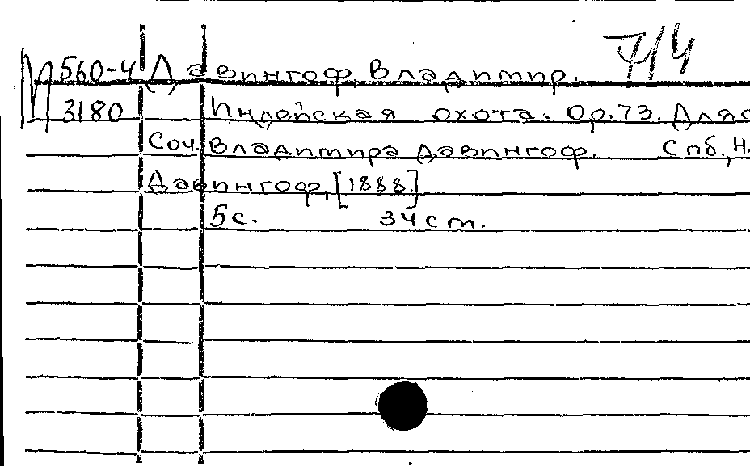 7/4
М 560-4 Давингоф, Владимир.
3180 Индейская охота. Op.73. Для
Соч. Владимира Давингоф. Спб, Н.
Давингоф, [1888]
5 с. 34 cm.